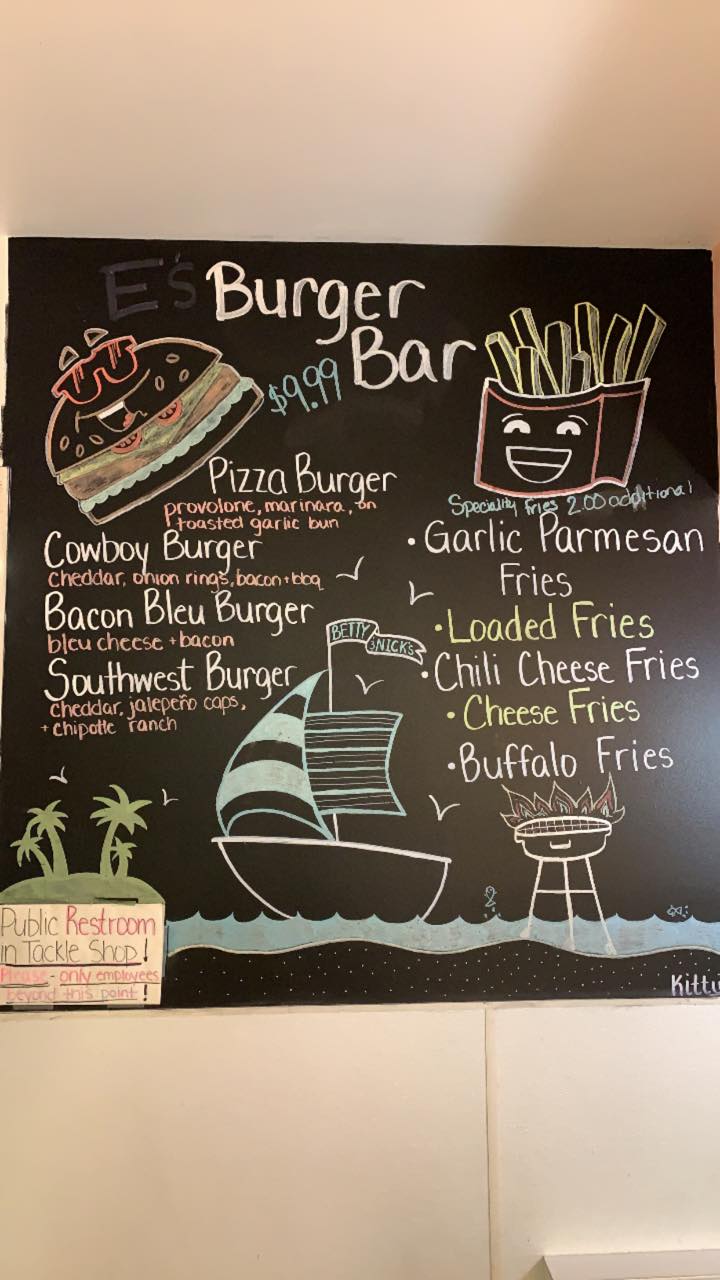 E's Burger
Bar
$9.99
Pizza Burger
provolone, marinara, on
toasted garlic bun
Cowboy Burger
cheddar, onion rings, bacon + bbq
Bacon Bleu Burger
bleu cheese + bacon
Southwest Burger
cheddar, jalepeño caps,
+ chipotle ranch
Speciality fries 2.00 additional
• Garlic Parmesan
Fries
• Loaded Fries
• Chili Cheese Fries
• Cheese Fries
• Buffalo Fries
BETTY
& NICK'S
Public Restroom
in Tackle Shop!
Please - only employees
beyond this point!
Kitty